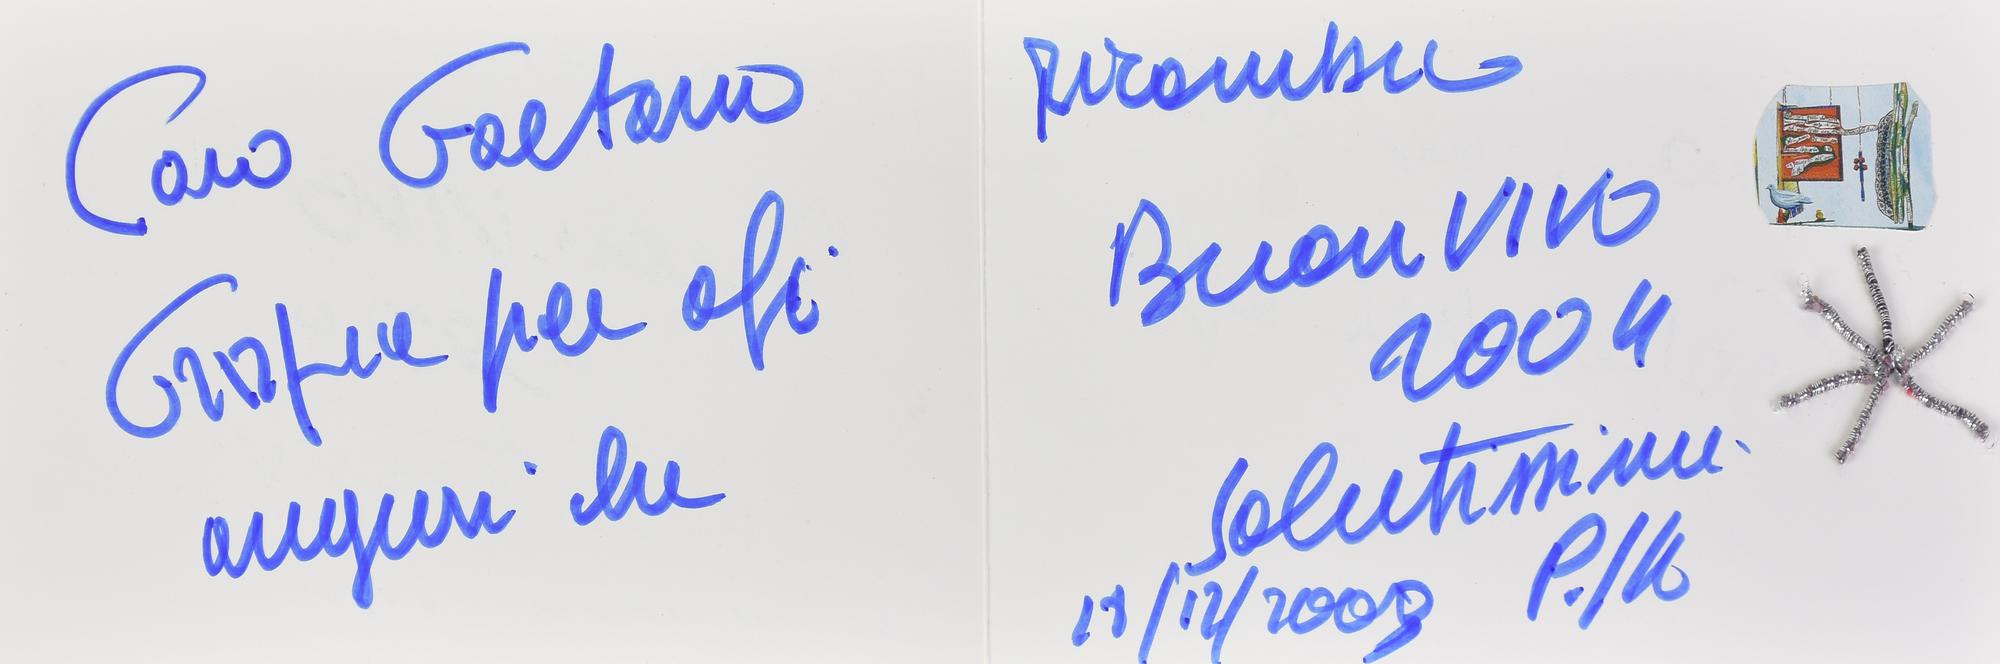 Caro Gaetano
Grazie per gli
auguri che
ricambio
Buon VIVO
2004
Salutissimi
17/12/2003